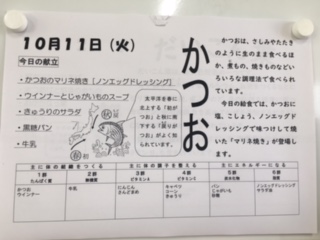 10月11日(火)
今日の献立
・かつおのマリネ焼き[ノンエッグドレッシング]
・ウインナーとじゃがいものスープ
・きゅうりのサラダ
・黒糖パン
・牛乳
太平洋を春に
北上する「初が
つお」と秋に南
下する「戻りが
つお」がよく知
られています。
秋
春
かつお
かつおは、さしみやたたき
のように生のまま食べるほ
か、煮もの、焼きものなどい
ろいろな調理法で食べられ
ています。
今日の給食では、かつおに
塩、こしょう、ノンエッグド
レッシングで味つけして焼
いた「マリネ焼き」が登場し
ます。
主に体の組織をつくる
主に体の調子を整える
主にエネルギーになる
1群 2群 3群 4群 5群 6群
たんぱく質 無機質 ビタミンA ビタミンC 炭水化物 脂質
かつお 牛乳 にんじん キャベツ パン ノンエッグドレッシング
ウインナー さんどまめ コーン じゃがいも サラダ油
きゅうり 砂糖